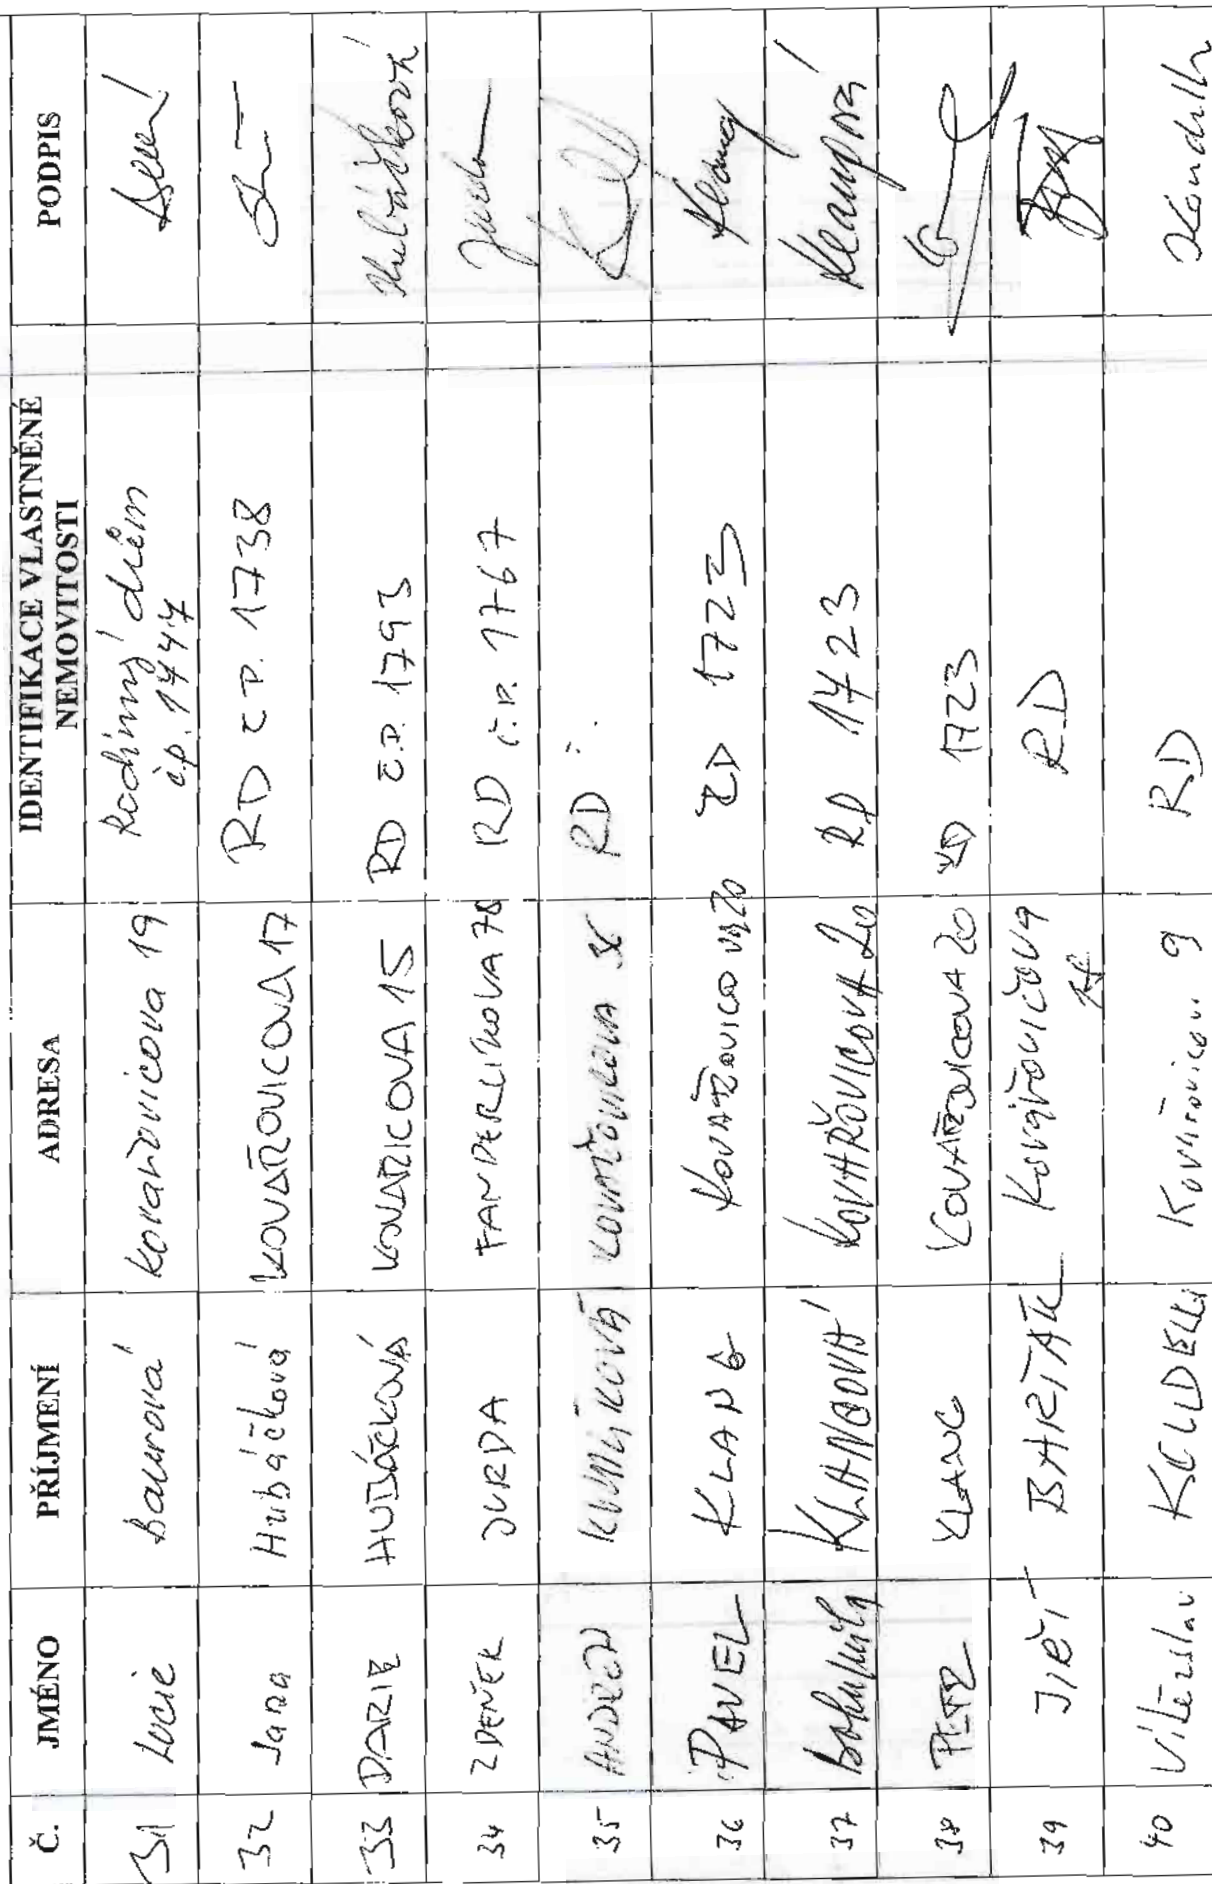 Č. JMÉNO PŘÍJMENÍ ADRESA IDENTIFIKACE VLASTNĚNÉ NEMOVITOSTI PODPIS
31 Lucie Baurová Kovařovicova 19 Rodinný dům
čp. 1747
32 Jana Hubáčková KOVAŘOVICOVA 17 RD č.P. 1738
33 DARIE HUBÁČKOVÁ KOVARICOVA 15 RD č.P. 1793 Hubáčková
34 ZDENĚK JURDA FANDERLIKOVA 78 RD č.P. 1767 Jurda
35 RD
36 PAVEL KLANG KOVAŘOVICOVA 20 RD 1723 Klang
37 Bohumila KLANGOVÁ KOVAŘOVICOVA 20 RD 1723
38 PETR KLANG KOVAŘOVICOVA 20 RD 1723
39 JIŘÍ BARTÁK Kovařovicova RD
40 Vítězslav Kovařovicova 9 RD